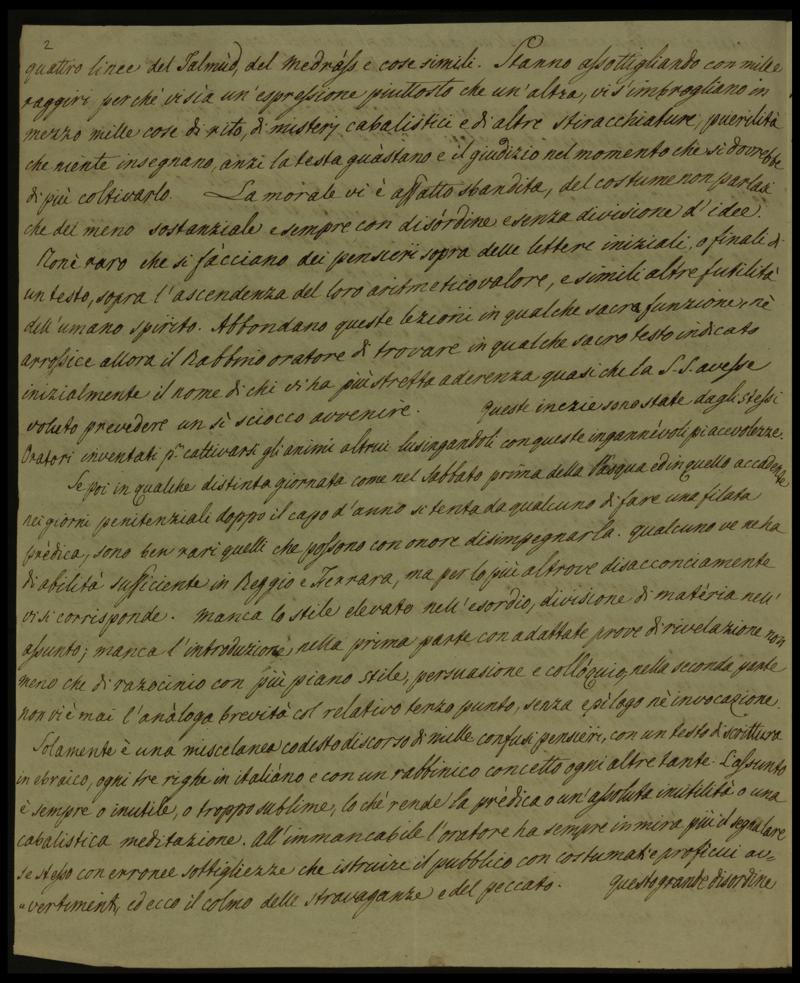 2
quattro linee del Talmùd, del Medràss e cose simili. Stanno assottigliando con mille
raggiri perchè visia un'espressione piuttosto che un'altra, vi s'improgliano in
mezzo mille cose di rito, di misterj cabalistici e di altre stiracchiature, puerilità
che niente insegnano, anzi la testa guàstano e il giudizio nel momento che si dovrebbe
di più coltivarlo. La morale vi è affatto sbandita, del costume non parlasi
che del meno sostanziale e sempre con disòrdine e senza divisione d'idee.
Non è raro che si fàcciano dei pensieri sopra delle lettere iniziali, o finali di
un testo, sopra l'ascendenza del loro aritmetico valore, e simili altre futilità
dell'umano spirito. Abbondano queste lezioni in qualche sacra funzione, nè
arrossice allora il Rabbino oratore di trovare in qualche sacro testo indicato
inizialmente il nome di chi vi ha più stretta aderenza quasi che la S.S. avesse
voluto prevedere un sì sciocco avvenire. Queste inezie sono state dagli stessi
Oratori inventati pr. cattivarsi gli animi altrui lusingandoli con queste ingannévoli piacevolezze.
Se poi in qualche distinta giornata come nel Sabbato prima della Pasqua ed in quello accadente
nei giorni penitenziali doppo il capo d'anno si tenta da qualcuno di fare una filata
prèdica, sono ben rari quelli che possono con onore disimpegnarla. qualcuno ve ne ha
di abilità sufficiente in Reggio e Ferrara, ma per lo più altrove disacconciamente
vi si corrisponde. Manca lo stile elevato nell'esordio, divisione di matèria nell'
assunto; manca l'introduzione nella prima parte con adattate prove di rivelazione non
meno che di razocinio con più piano stile, persuasione e collòquio, nella seconda parte
non vi è mai l'anàloga brevità col relativo terzo punto, senza epìlogo nè invocazione.
Solamente è una miscelanea codesto discorso di mille confusi pensieri, con un testo di scrittura
in ebraico, ogni tre righe in italiàno e con un rabbinico concetto ogni altre tante. L'assunto
è sempre o inutile, o troppo sublime, lo chè rende la prèdica o un'assoluta inutilità o una
cabalistica meditazione. All'immancabile l'oratore ha sempre in mira più il segnalare
se stesso con erronee sottigliezze che istruire il pubblico con costumate proficui av=
=vertimenti, ed ecco il colmo delle stravaganze e del peccato. Questo grande disordine